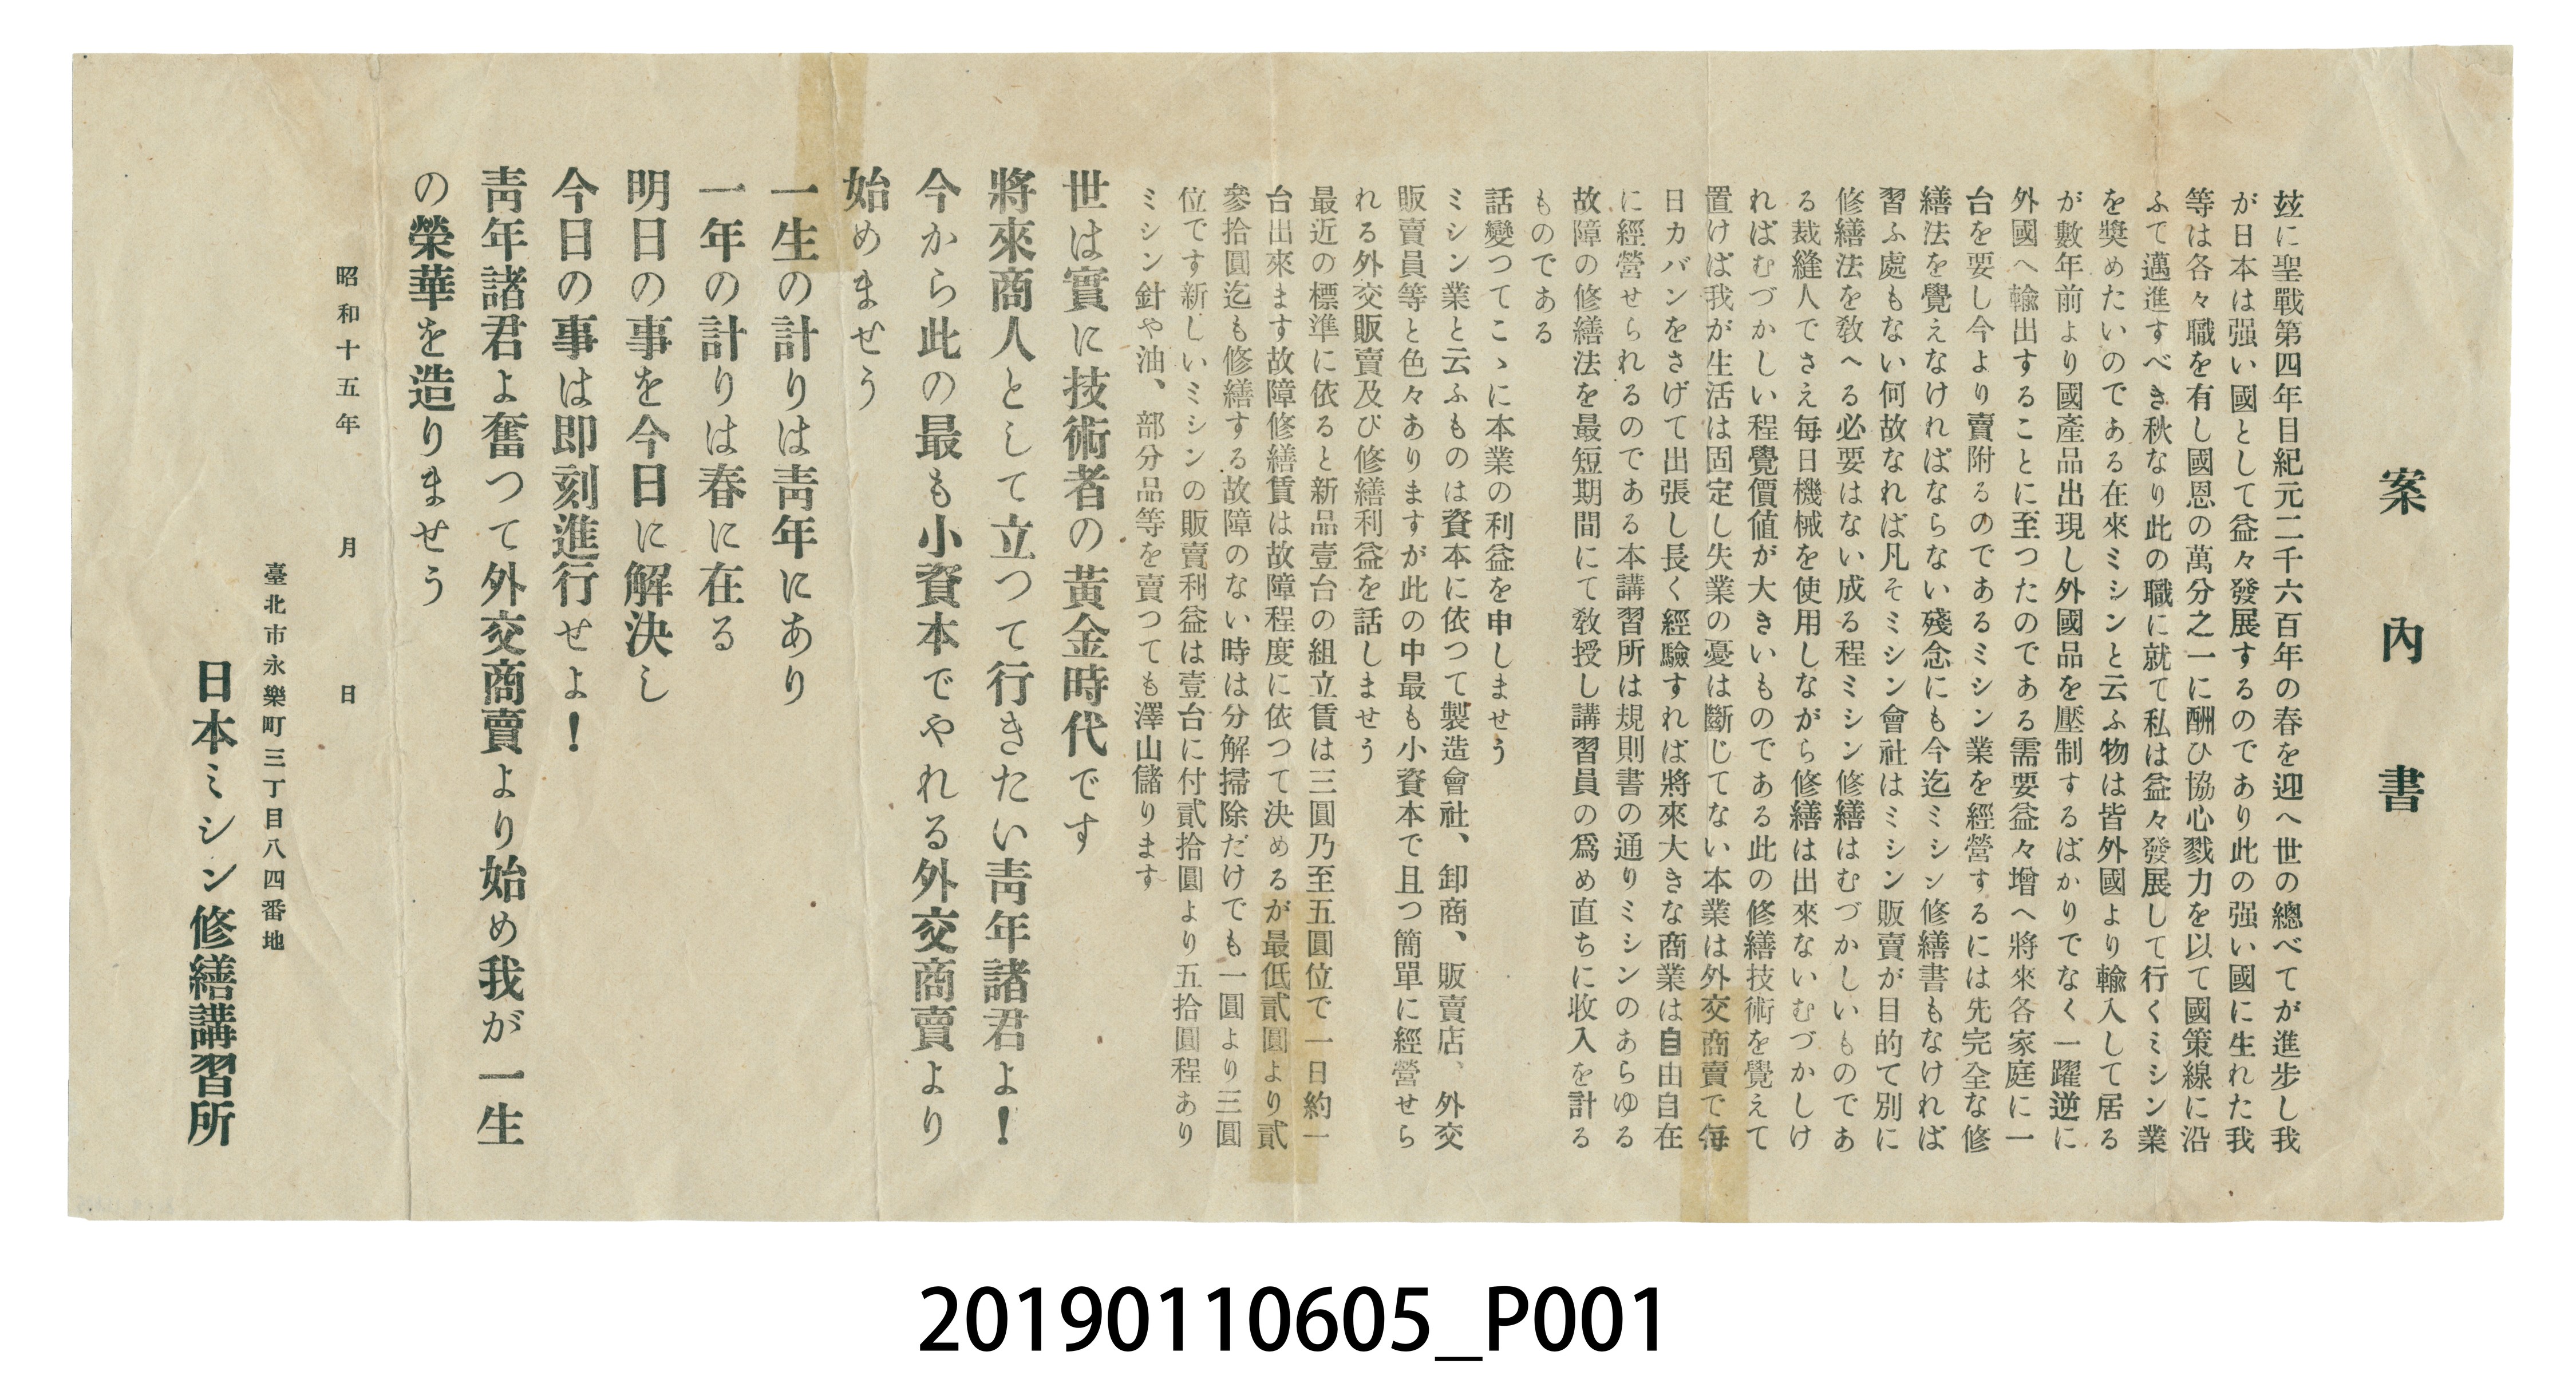 案內書
玆に聖戰第四年目紀元二千六百年の春を迎へ世の總べてが進步し我
が日本は强い國として益々發展するのであり此の强い國に生れた我
等は各々職を有し國恩の萬分之一に酬ひ協心戮力を以て國策線に沿
ふて邁進すべき秋なり此の職に就て私は益々發展して行くミシン業
を奬めたいのである在來ミシンと云ふ物は皆外國より輸入して居る
が數年前より國產品出現し外國品を壓制するばかりでなく一躍逆に
外國へ輸出することに至つたのである需要益々增へ將來各家庭に一
台を要し今より賣附るのであるミシン業を經營するには先完全な修
繕法を覺えなければならない殘念にも今迄ミシン修繕書もなければ
習ふ處もない何故なれば凡そミシン會社はミシン販賣が目的て別に
修繕法を敎へる必要はない成る程ミシン修繕はむづかしいものであ
る裁縫人でさえ每日機械を使用しながら修繕は出來ないむづかしけ
ればむづかしい程覺價値が大きいものである此の修繕技術を覺えて
置けば我が生活は固定し失業の憂は斷じてない本業は外交商賣で每
日カバンをさげて出張し長く經驗すれば將來大きな商業は自由自在
に經營せられるのである本講習所は規則書の通りミシンのあらゆる
故障の修繕法を最短期間にて敎授し講習員の爲め直ちに收入を計る
ものである
話變つてこゝに本業の利益を申しませう
ミシン業と云ふものは資本に依つて製造會社、卸商、販賣店、外交
販賣員等と色々ありますが此の中最も小資本で且つ簡單に經營せら
れる外交販賣及び修繕利益を話しませう
最近の標準に依ると新品壹台の組立賃は三圓乃至五圓位で一日約一
台出來ます故障修繕賃は故障程度に依つて決めるが最低貳圓より貳
參拾圓迄も修繕する故障のない時は分解掃除だけでも一圓より三圓
位です新しいミシンの販賣利益は壹台に付貳拾圓より五拾圓程あり
ミシン針や油、部分品等を賣つても澤山儲ります
世は實に技術者の黃金時代です
將來商人として立つて行きたい靑年諸君よ！
今から此の最も小資本でやれる外交商賣より
始めませう
一生の計りは靑年にあり
一年の計りは春に在る
明日の事を今日に解決し
今日の事は卽刻進行せよ！
靑年諸君よ奮つて外交商賣より始め我が一生
の榮華を造りませう
昭和十五年　月　日
臺北市永樂町三丁目八四番地
日本ミシン修繕講習所
20190110605_P001